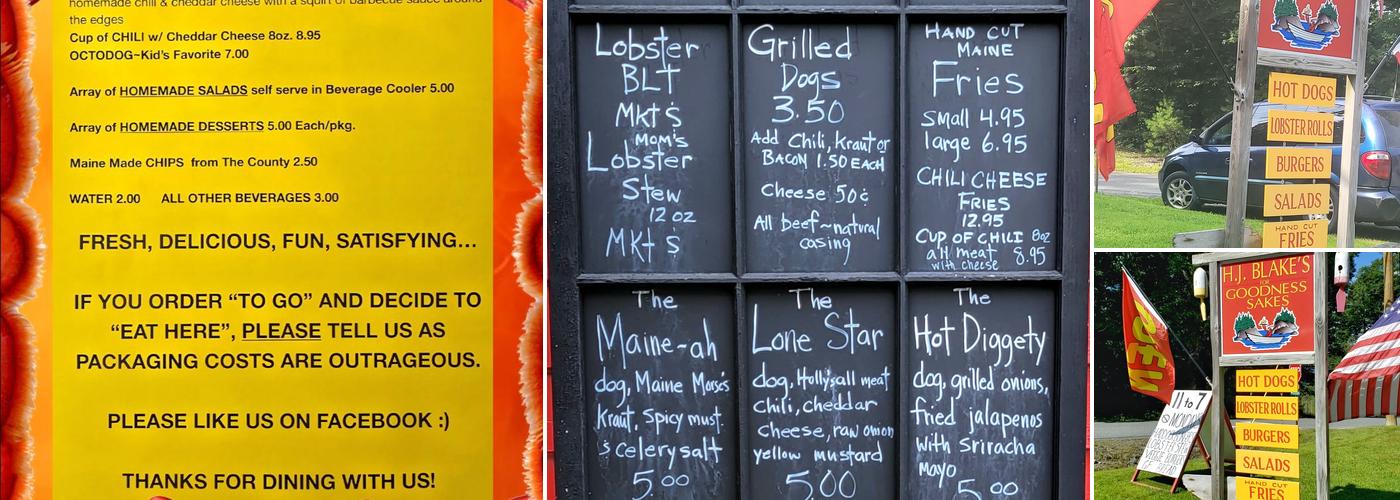 homemade chili & cheddar cheese with a squirt of barbecue sauce around
the edges
Cup of CHILI w/ Cheddar Cheese 8oz. 8.95
OCTODOG~Kid's Favorite 7.00
Array of HOMEMADE SALADS self serve in Beverage Cooler 5.00
Array of HOMEMADE DESSERTS 5.00 Each/pkg.
Maine Made CHIPS from The County 2.50
WATER 2.00 ALL OTHER BEVERAGES 3.00
FRESH, DELICIOUS, FUN, SATISFYING...
IF YOU ORDER "TO GO" AND DECIDE TO
"EAT HERE", PLEASE TELL US AS
PACKAGING COSTS ARE OUTRAGEOUS.
PLEASE LIKE US ON FACEBOOK :)
THANKS FOR DINING WITH US!
Lobster
BLT
Mkt $
Mom's
Lobster
Stew
12 oz
Mkt $
Grilled
Dogs
3.50
Add Chili, Kraut or
BACON 1.50 EACH
Cheese 50¢
All beef~natural
casing
HAND CUT
MAINE
Fries
Small 4.95
large 6.95
CHILI CHEESE
FRIES
12.95
CUP OF CHILI 8oz
all meat 8.95
with cheese
The
Maine-ah
dog, Maine Morse's
Kraut, Spicy must.
& celery salt
5.00
The
Lone Star
dog, Holly's all meat
chili, cheddar
cheese, raw onion
yellow mustard
5.00
The
Hot Diggety
dog, grilled onions,
fried jalapenos
with Sriracha
mayo
5.00
HOT DOGS
LOBSTER ROLLS
BURGERS
SALADS
HAND CUT
FRIES
H.J. BLAKE'S
FOR
GOODNESS
SAKES
OPEN
11 to 7
HOT DOGS
LOBSTER ROLLS
BURGERS
SALADS
HAND CUT
FRIES